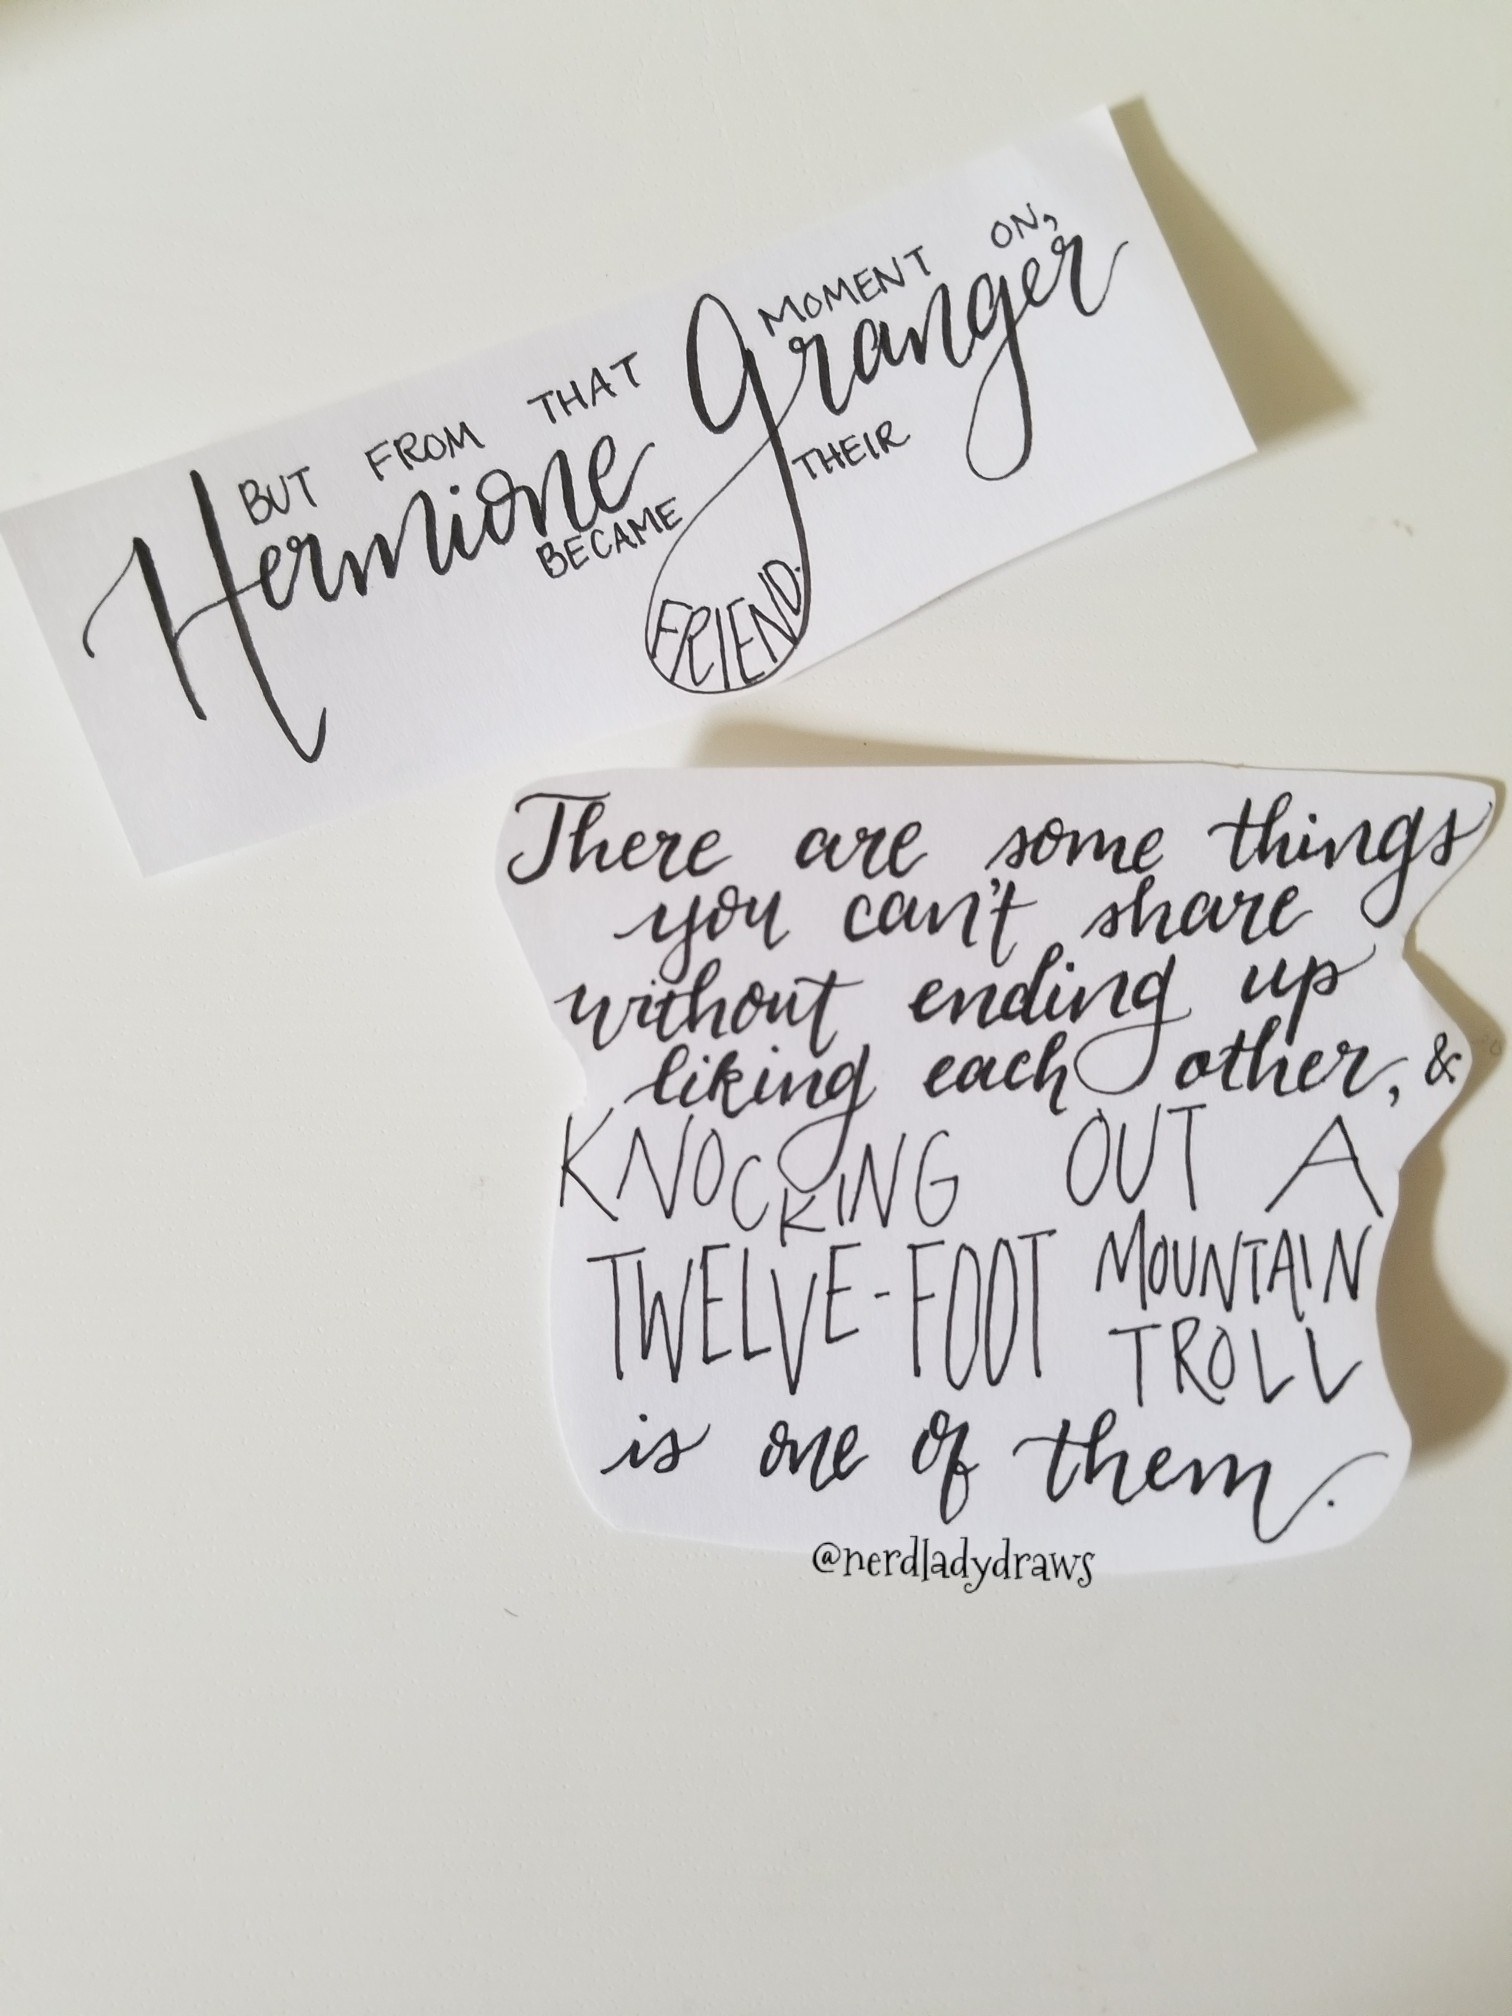 BUT FROM THAT MOMENT ON,
Hermione Granger
BECAME THEIR
FRIEND.
There are some things
you can't share
without ending up
liking each other, &
KNOCKING OUT A
TWELVE-FOOT MOUNTAIN
TROLL
is one of them.
@nerdladydraws